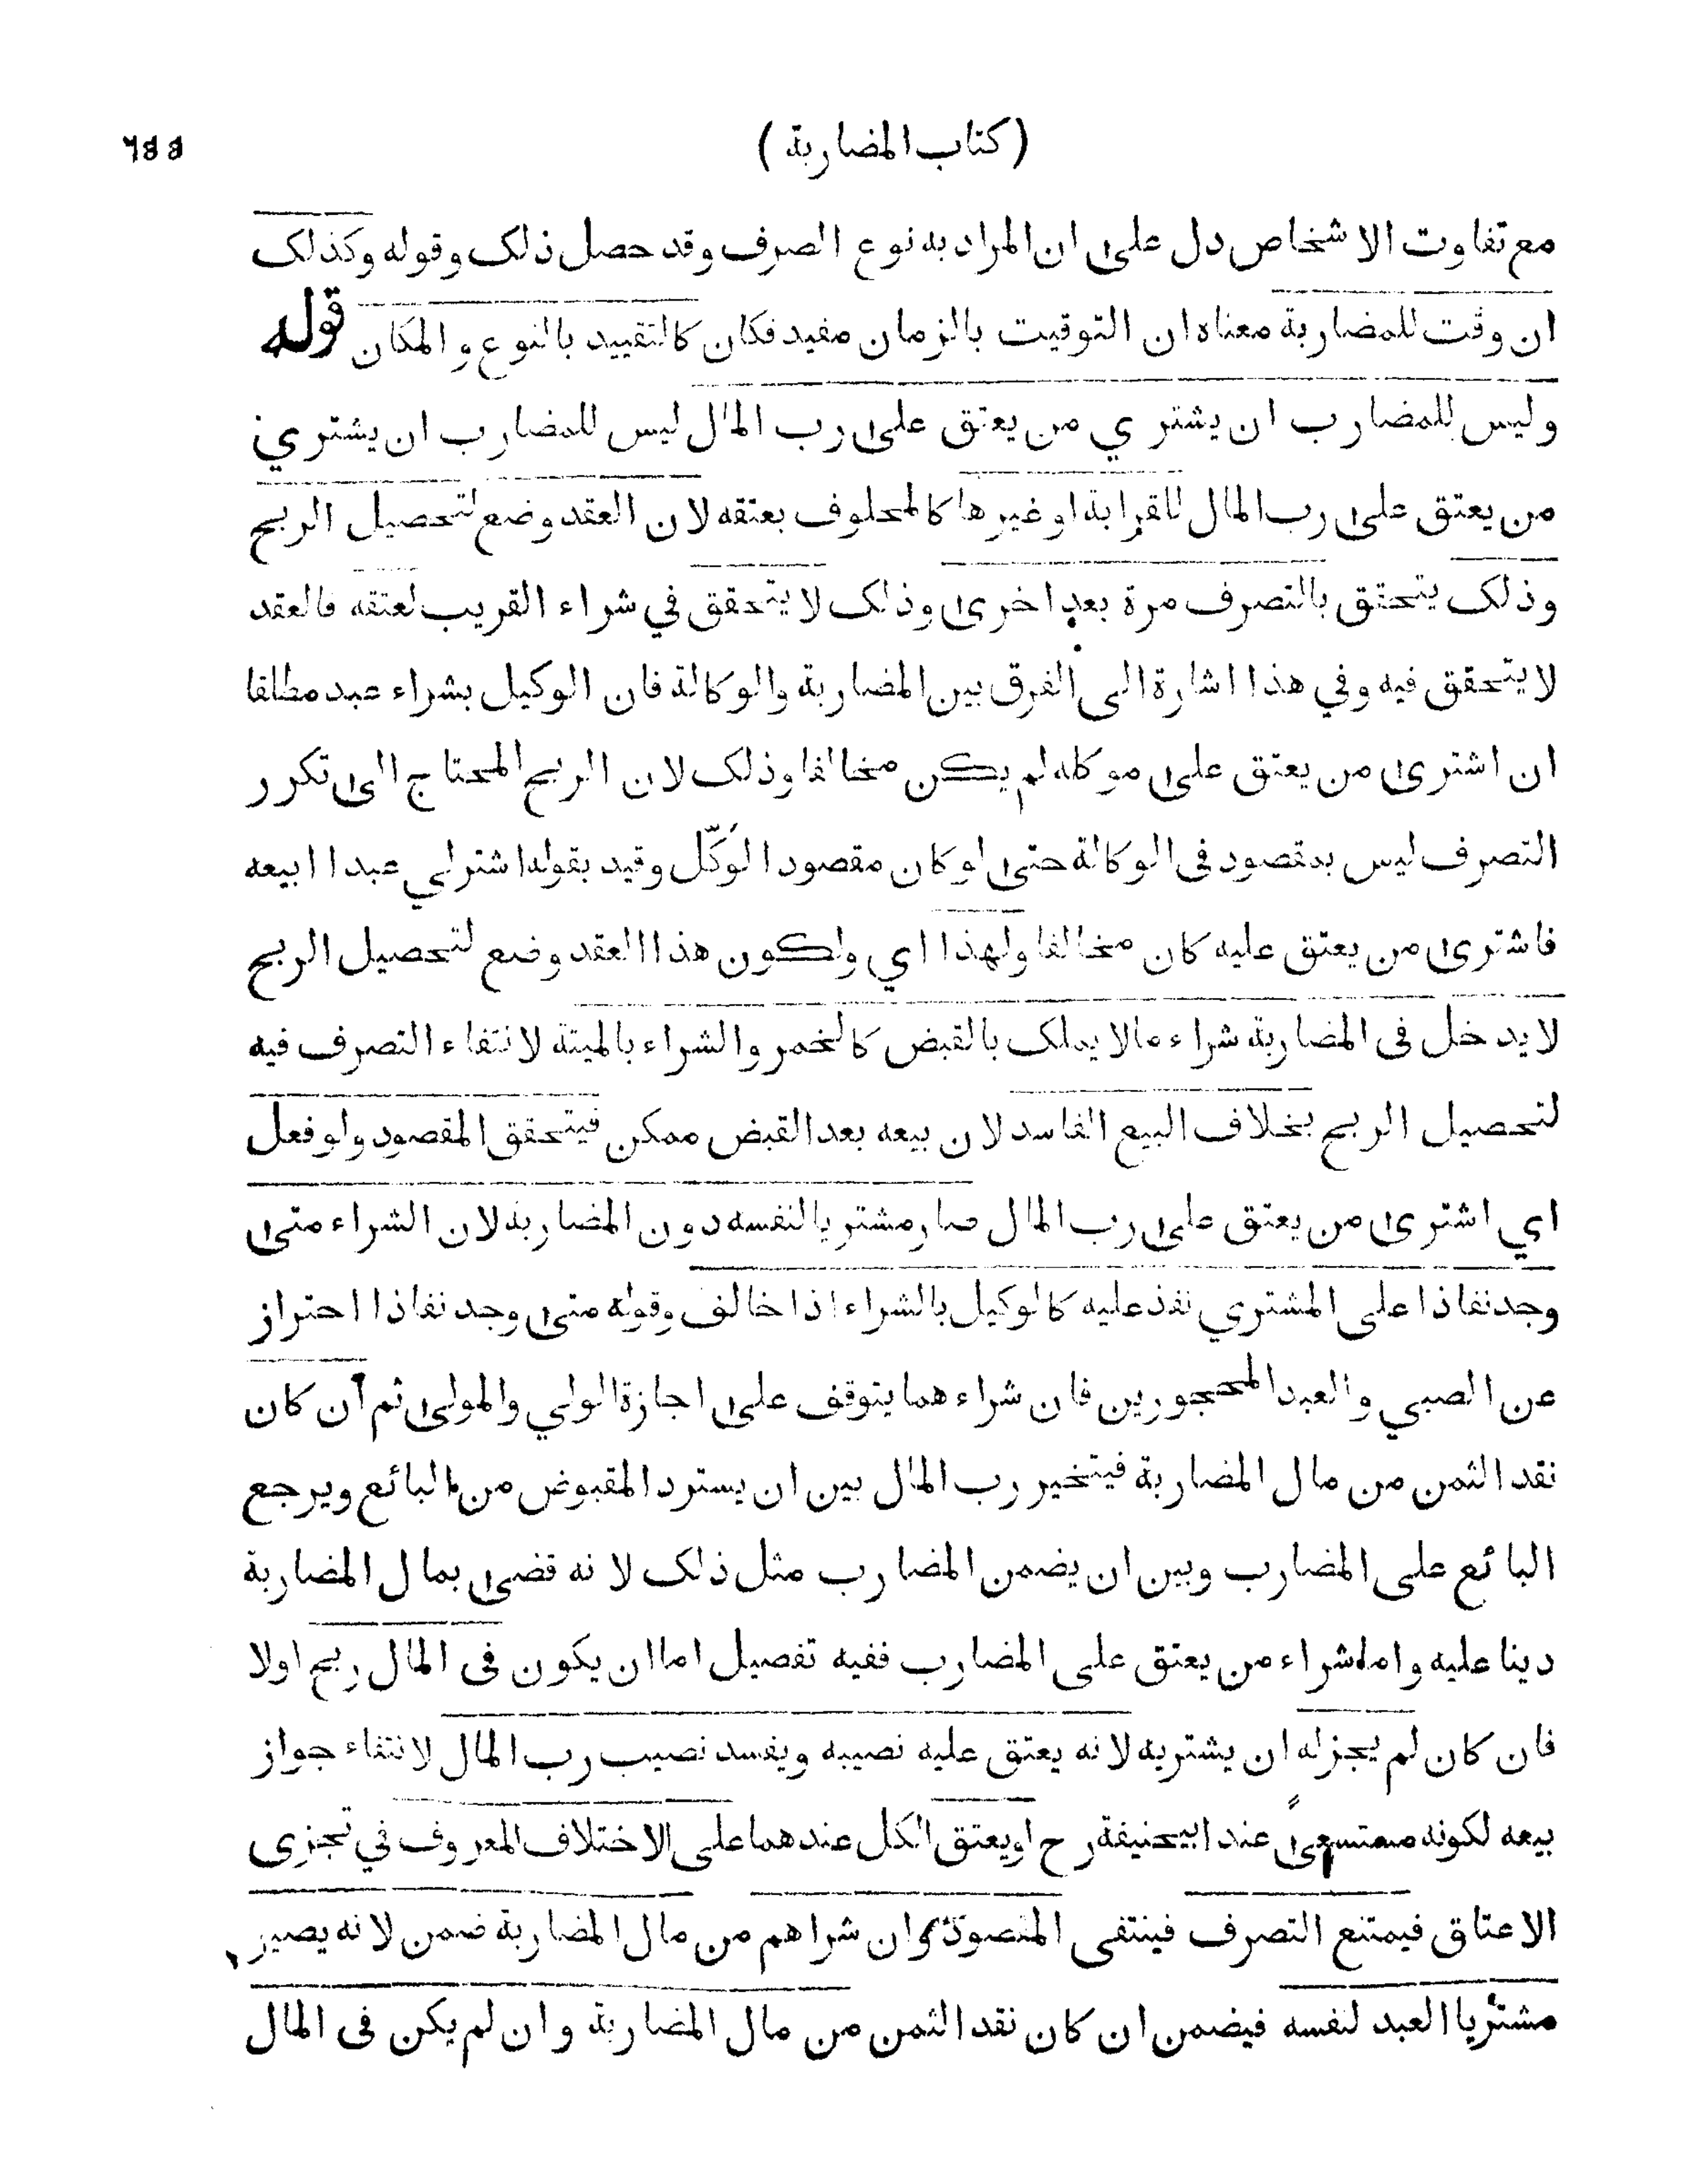 (كتاب المضاربة)
مع تفاوت الاشخاص دل على ان المراد به نوع الصرف وقد حصل ذلك وقوله وكذلك
ان وقت للمضاربة معناه ان التوقيت بالزمان مفيد فكان كالتقييد بالنوع والمكان قوله
وليس للمضارب ان يشتري من يعتق على رب المال ليس للمضارب ان يشتري
من يعتق على رب المال للقرابة او غيرها كالمحلوف بعتقه لان العقد وضع لتحصيل الربح
وذلك يتحقق بالتصرف مرة بعد اخرى وذلك لا يتحقق في شراء القريب لعتقه فالعقد
لا يتحقق فيه وفي هذا اشارة الى الفرق بين المضاربة والوكالة فان الوكيل بشراء عبد مطلقا
ان اشترى من يعتق على موكله لم يكن مخالفا وذلك لان الربح المحتاج الى تكرر
التصرف ليس بمقصود في الوكالة حتى لو كان مقصود الموكّل وقيد بقوله اشتر لي عبدا ابيعه
فاشترى من يعتق عليه كان مخالفا ولهذا اي ولكون هذا العقد وضع لتحصيل الربح
لا يدخل في المضاربة شراء مالا يملك بالقبض كالخمر والشراء بالميتة لانتفاء التصرف فيه
لتحصيل الربح بخلاف البيع الفاسد لان بيعه بعد القبض ممكن فيتحقق المقصود ولو فعل
اي اشترى من يعتق على رب المال صار مشتريا لنفسه دون المضاربة لان الشراء متى
وجد نفاذا على المشتري نفذ عليه كالوكيل بالشراء اذا خالف وقوله متى وجد نفاذا احتراز
عن الصبي والعبد المحجورين فان شراءهما يتوقف على اجازة الولي والمولى ثم ان كان
نقد الثمن من مال المضاربة فيتخير رب المال بين ان يسترد المقبوض من البائع ويرجع
البائع على المضارب وبين ان يضمن المضارب مثل ذلك لانه قضى بمال المضاربة
دينا عليه واما شراء من يعتق على المضارب ففيه تفصيل اما ان يكون في المال ربح اولا
فان كان لم يجز له ان يشتريه لانه يعتق عليه نصيبه ويفسد نصيب رب المال لانتفاء جواز
بيعه لكونه مستسعى عند ابيحنيفة رح او يعتق الكل عندهما على الاختلاف المعروف في تجزى
الاعتاق فيمتنع التصرف فينتفى المقصود وان شراهم من مال المضاربة ضمن لانه يصير
مشتريا العبد لنفسه فيضمن ان كان نقد الثمن من مال المضاربة وان لم يكن في المال